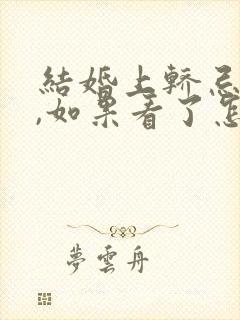 結婚上轎忌
,如果看了怎
夢雲舟